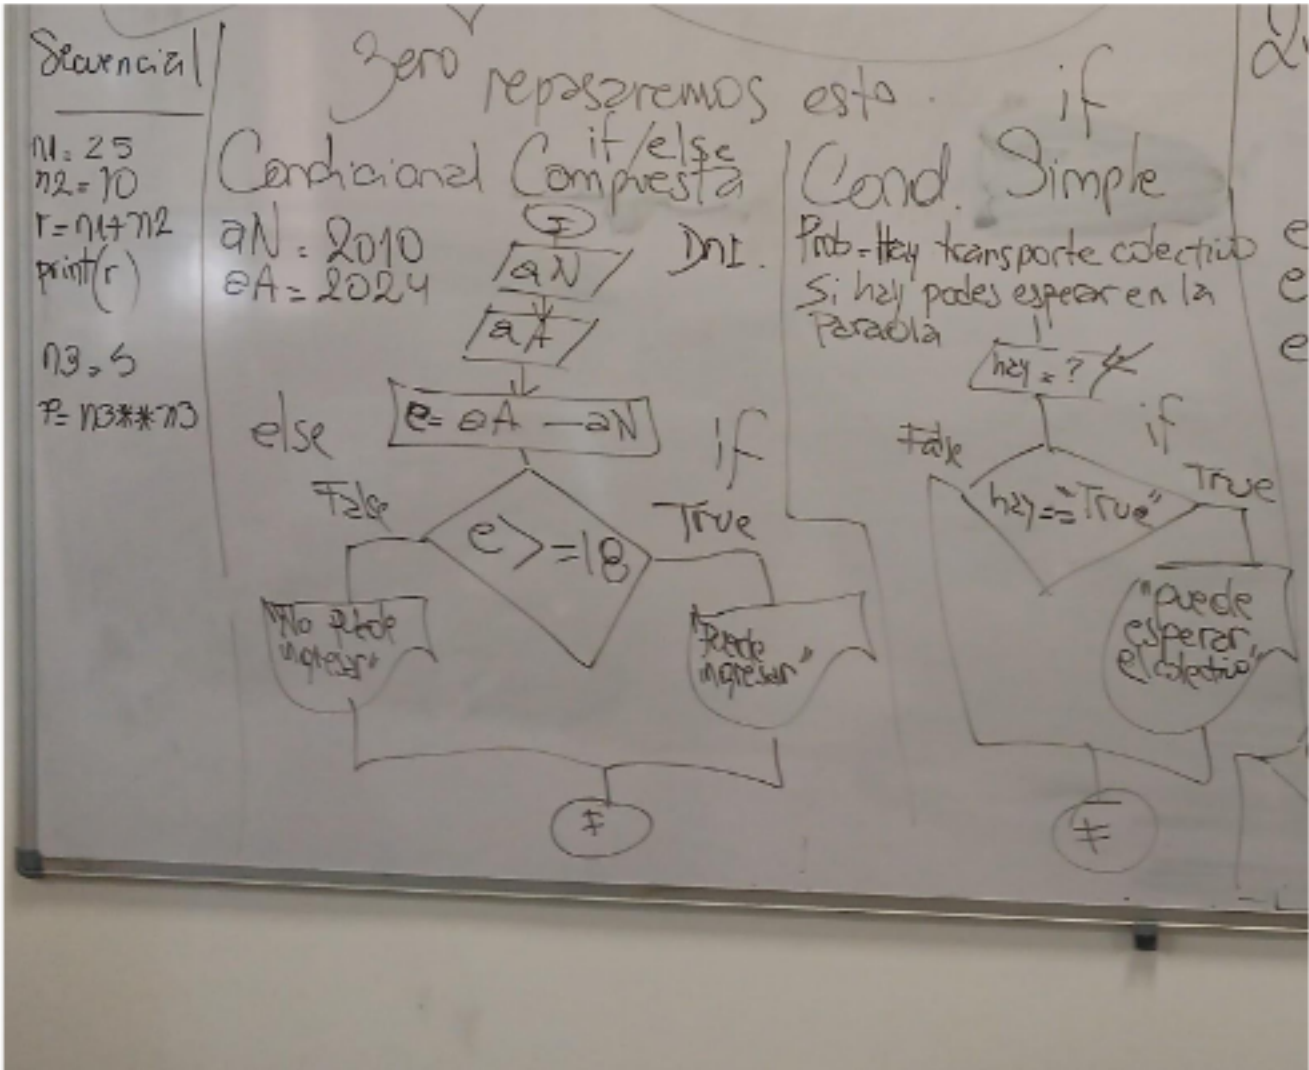 Secuencial
n1=25
n2=10
r=n1+n2
print(r)
n3=5
r=n3**n3
3ero repasaremos esto.
if/else
Condicional Compuesta
aN=2010
aA=2024
I
DNI.
aN
aA
e=aA-aN
else
if
False
True
e>=18
"No puede
ingresar"
"Puede
ingresar"
F
if
Cond. Simple
Prob-Hay transporte colectivo
Si hay podes esperar en la
Parada
hay=?
if
False
True
hay=="True"
"puede
esperar
el colectivo"
F
e
e
e